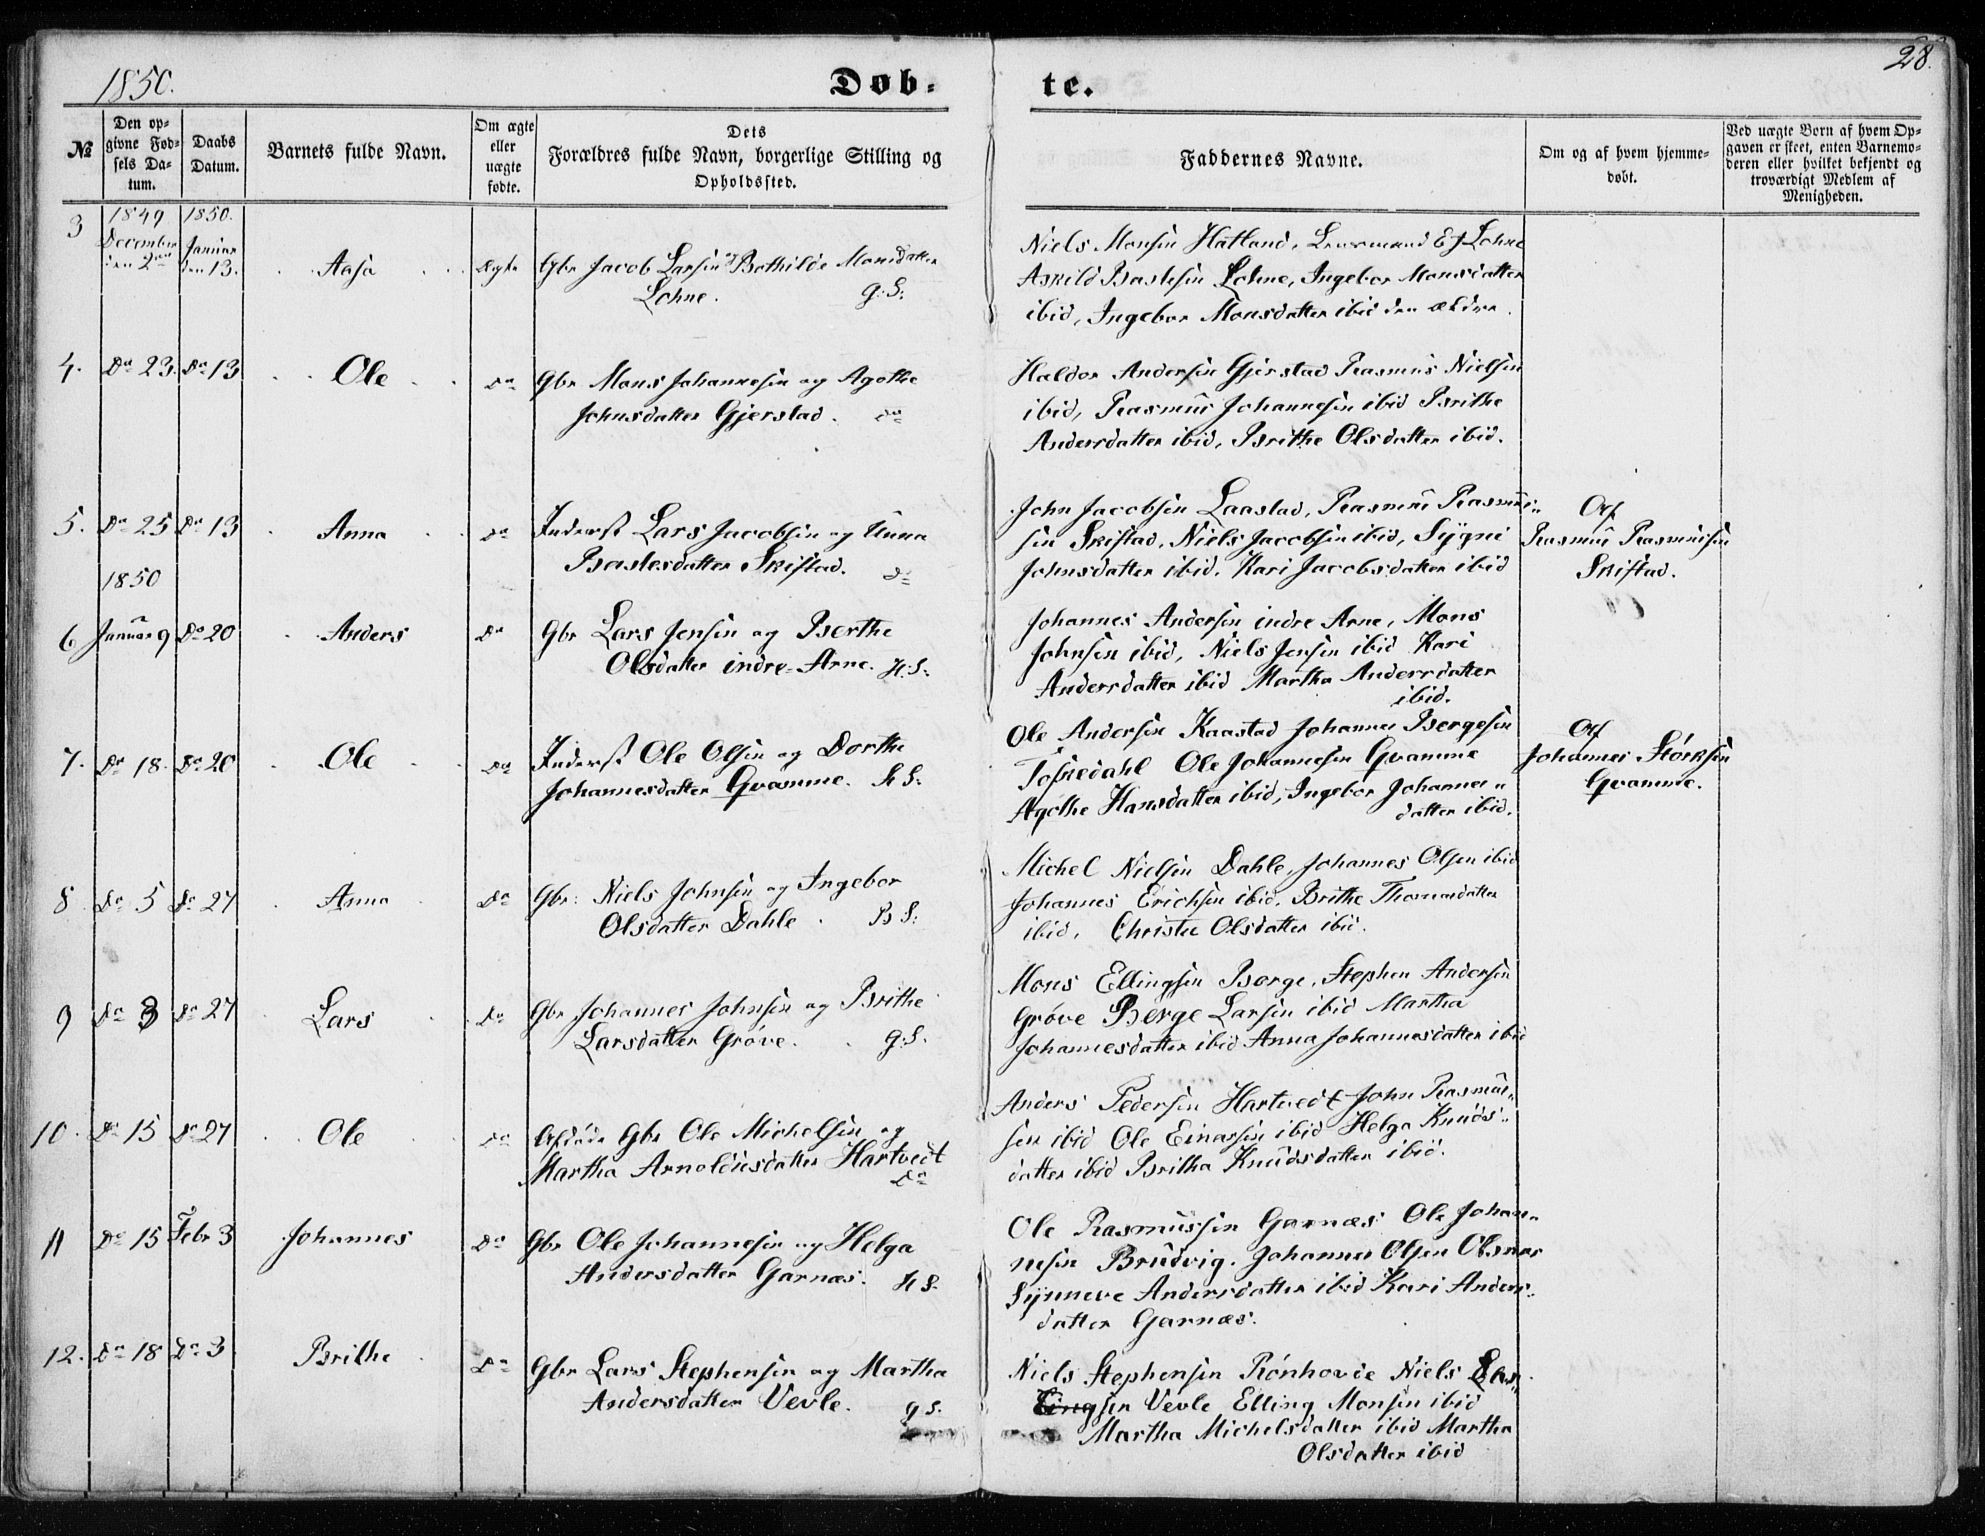 1850.
Døb-
te.
28.
№
Den op-
givne Fød-
sels Da-
tum.
Daabs
Datum.
Barnets fulde Navn.
Om ægte
eller
uægte
fødte.
Dets
Forældres fulde Navn, borgerlige Stilling og
Opholdssted.
Faddernes Navne.
Om og af hvem hjemme-
døbt.
Ved uægte Børn af hvem Op-
gaven er skeet, enten Barnemo-
deren eller hvilket bekjendt og
troværdigt Medlem af
Menigheden.
3
1849
December
den 2den
1850.
Januar
den 13.
Aasa
Ægte
Gbr Jacob Larsen og Bothilde Monsdatter
Lohne. G:S:
Niels Monsen Hatland, Lensmand Lohne
Askild Lohne, Ingebor Monsdatter
ibid, Ingebor Monsdatter ibid den ældre.
4.
Do 23.
Do 13
Ole
Do
Gbr Mons Johannesen og Agathe
Johnsdatter Gjerstad. do
Haldor Andersen Gjerstad Rasmus Nielsen
ibid, Rasmus Johannesen ibid Brithe
Andersdatter ibid, Brithe Olsdatter ibid.
5.
Do 25
Do 13
Anna
Do
Inderst Lars Jacobsen og Anna
Skistad. Do
John Jacobsen Laastad, Rasmus Rasmus-
sen Skistad, Niels Jacobsen ibid, Sygni
Johnsdatter ibid, Kari Jacobsdatter ibid
Af
Rasmus Rasmussen
Skistad.
1850
6
Januar 9
Do 20
Anders
Do
Gbr Lars Jensen og Berthe
Olsdatter indre-Arne. H.S:
Johannes Andersen indre Arne, Mons
Johnsen ibid, Niels Jensen ibid Kari
Andersdatter ibid Martha Andersdatter
ibid.
7.
Do 18.
Do 20
Ole
Do
Inderst Ole Olsen og Dorthe
Johannesdatter Gvamme. H S:
Ole Andersen Kaastad Johannes Bergesen
Ole Johannesen Gvamme
Agathe Hansdatter ibid, Ingebor Johannes-
datter ibid.
Af
Johannes Størksen
Gvamme.
8
Do 5
Do 27
Anna
Do
Gbr: Niels Johnsen og Ingebor
Olsdatter Dahle. B S:
Michel Nielsen Dahle, Johannes Olsen ibid
Johannes Erichsen ibid, Brithe Thomasdatter
ibid, Christie Olsdatter ibid.
9
Do 3
Do 27
Lars
Do
Gbr Johannes Johnsen og Brithe
Larsdatter Grøve. G:S.
Mons Ellingsen Borge, Stephen Andersen
Grøve Berge Larsen ibid Martha
Johannesdatter ibid Anna Johannesdatter ibid
10.
Do 15
Do 27
Ole
Do
Afdøde Gbr Ole Michelsen og
Martha Arnoldusdatter Hartvedt
Do
Anders Pedersen Hartvedt John Rasmus-
sen ibid Ole Einarsen ibid Helga Knuds-
datter ibid Britha Knudsdatter ibid.
11
Do 15
Febr 3
Johannes
Do
Gbr Ole Johannesen og Helga
Andersdatter Garnæs. H S.
Ole Rasmussen Garnæs Ole Johan-
nesen Brudvig. Johannes Olsen
Synneve Andersdatter ibid Kari Anders-
datter Garnæs.
12.
Do 18
Do 3
Brithe
Do
Gbr Lars Stephensen og Martha
Andersdatter Vevle. G S.
Niels Stephensen Rønhovde Niels
Vevle Elling Monsen ibid
Martha Michelsdatter ibid Martha
Olsdatter ibid